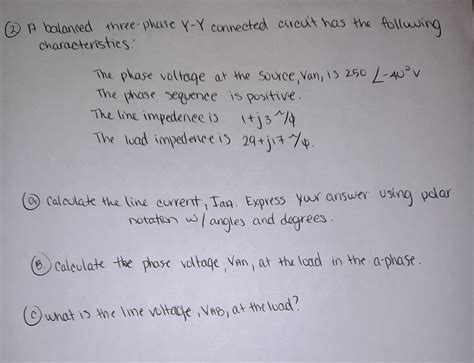 ② A balanced three-phase Y-Y connected circuit has the following
characteristics:
The phase voltage at the source, Van, is 250 ∠-40° V
The phase sequence is positive.
The line impedence is 1+j3 ~/φ
The load impedence is 29+j17 ~/φ.
ⓐ Calculate the line current, IaA. Express your answer using polar
notation w/ angles and degrees.
Ⓑ Calculate the phase voltage, VAN, at the load in the a-phase.
Ⓒ what is the line voltage, VAB, at the load?